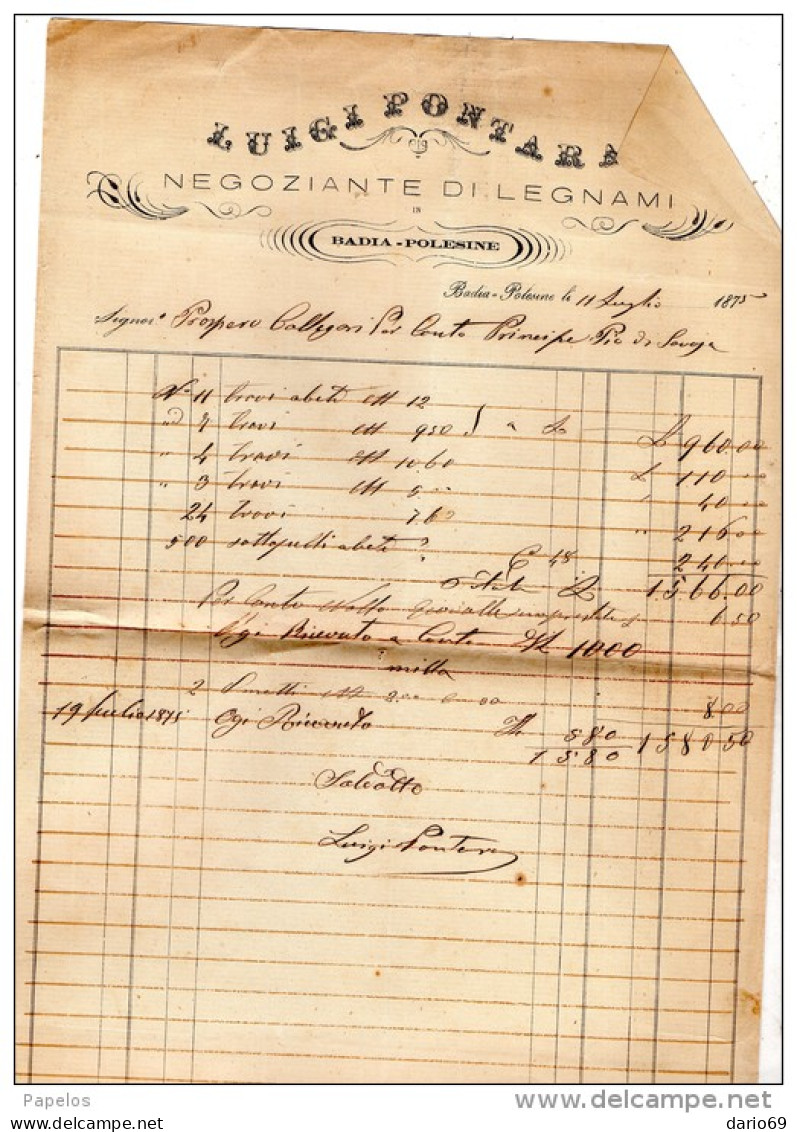 LUIGI PONTARA
NEGOZIANTE DI LEGNAMI
IN
BADIA-POLESINE
Badia-Polesine li 11 Luglio 1875
Signor Prospero Callegari Per Conto Principe Pio di Savoja
N° 11 travi abete 12
4 travi 950 a £ 960.00
" 4 travi 10 60 £ 110
" 3 travi 40
24 travi 7.60 " 216.00
500 abete 48 240
£ 1566.00
Per Conto 6.50
Ogi Ricevuto a Conto 1000
milla
2 8.00
19 Luglio 1875 Ogi Ricevuto 580 1580 50
1580
Saldatto
Luigi Pontara
Papelos
©www.delcampe.net
dario69